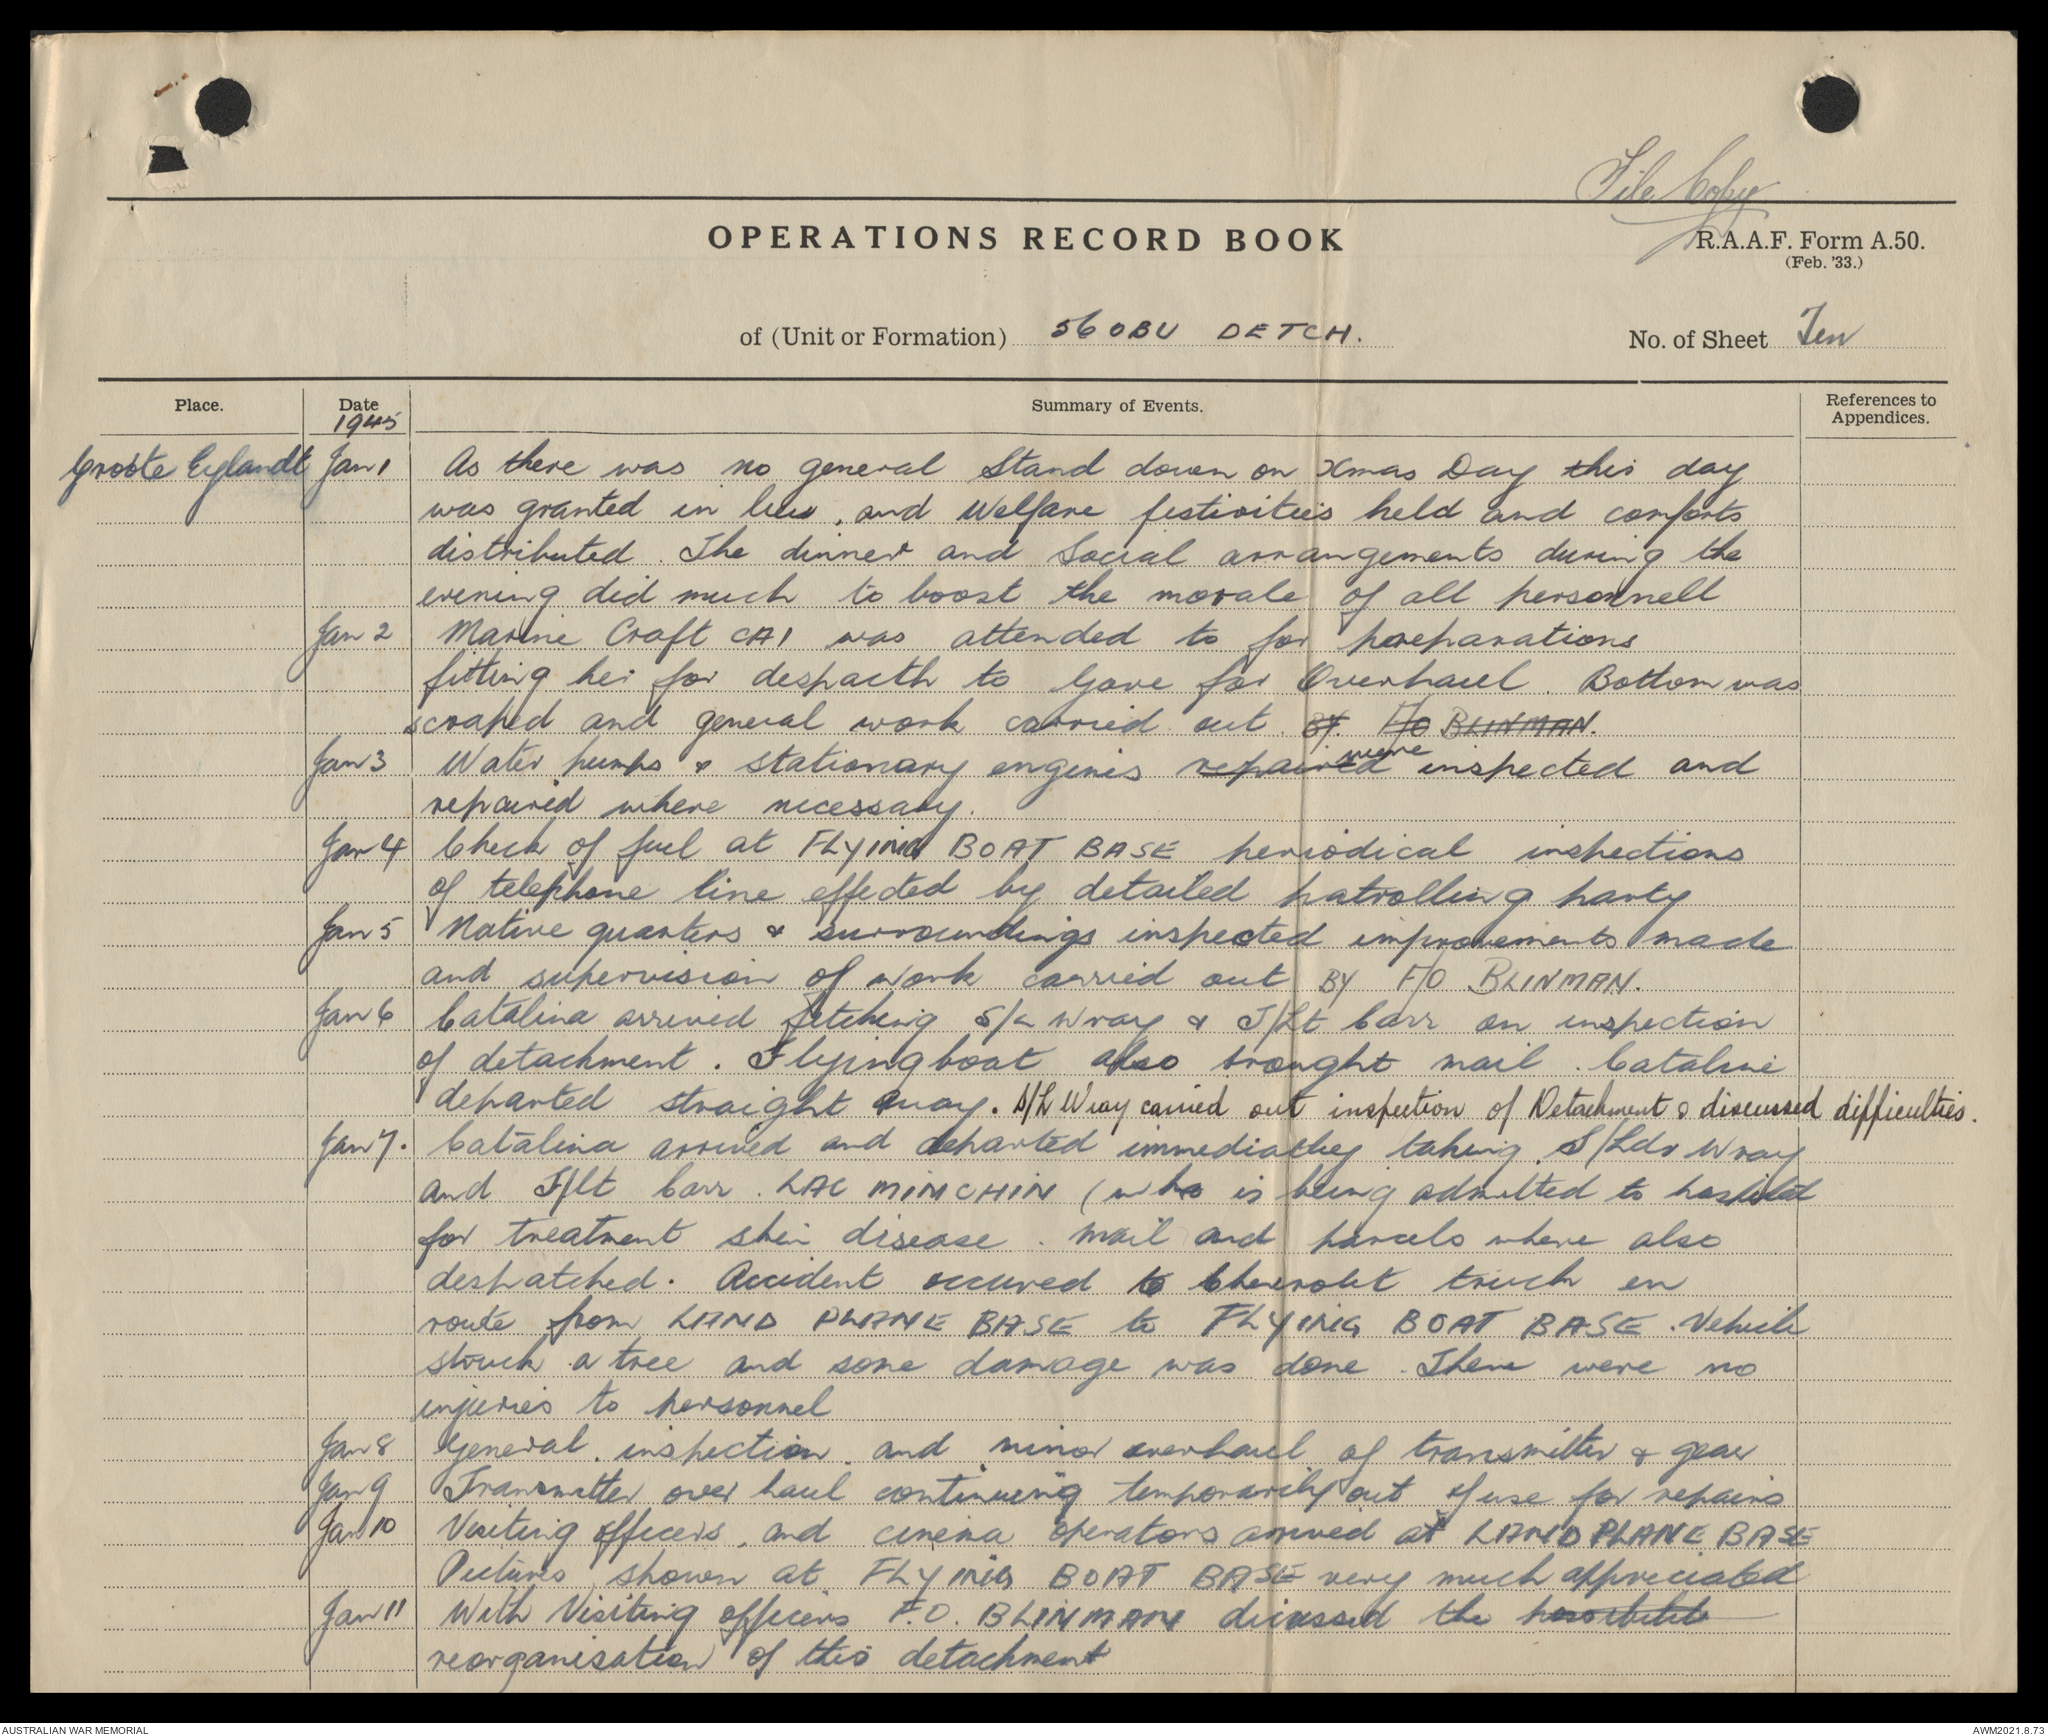 File Copy
OPERATIONS RECORD BOOK
R.A.A.F. Form A.50.
(Feb. '33.)
of (Unit or Formation) 56 OBU DETCH.
No. of Sheet Ten
Place.
Date
1945
Summary of Events.
References to
Appendices.
Groote Eylandt Jan 1 As there was no general Stand down on Xmas Day this day
was granted in lieu, and Welfare festivities held and comforts
distributed. The dinner and Social arrangements during the
evening did much to boost the morale of all personnell
Jan 2 Marine Craft CA1 was attended to for preparations
fitting her for despacth to Gove for Overhaul. Bottom was
scraped and general work carried out BY. F/O BLINMAN.
Jan 3 Water pumps & stationary engines repaired were inspected and
repaired where necessary.
Jan 4 Check of fuel at FLYING BOAT BASE periodical inspections
of telephone line effected by detailed patrolling party
Jan 5 Native quarters & surroundings inspected improvements made
and supervision of work carried out BY F/O BLINMAN.
Jan 6 Catalina arrived fetching S/L Wray & F/Lt Carr on inspection
of detachment. Flyingboat also brought mail. Cataline
departed straight away. S/L Wray carried out inspection of Detachment & discussed difficulties.
Jan 7. Catalina arrived and departed immediatley taking S/Ldr Wray
and F/Lt Carr. LAC MINCHIN (who is being admitted to hospital
for treatment skin disease. Mail and parcels where also
despatched. Accident occured to Chevrolet truck en
route from LAND PLANE BASE to FLYING BOAT BASE. Vehicle
struck a tree and some damage was done. There were no
injuries to personnel
Jan 8 General inspection and minor overhaul of transmitter & gear
Jan 9 Transmitter over haul continuing temporarily out of use for repairs
Jan 10 Visiting officers, and cinema operators arrived at LAND PLANE BASE
Pictures shown at FLYING BOAT BASE very much appreciated
Jan 11 With Visiting officers F.O. BLINMAN dicussed the
reorganisation of this detachment
AUSTRALIAN WAR MEMORIAL
AWM2021.8.73